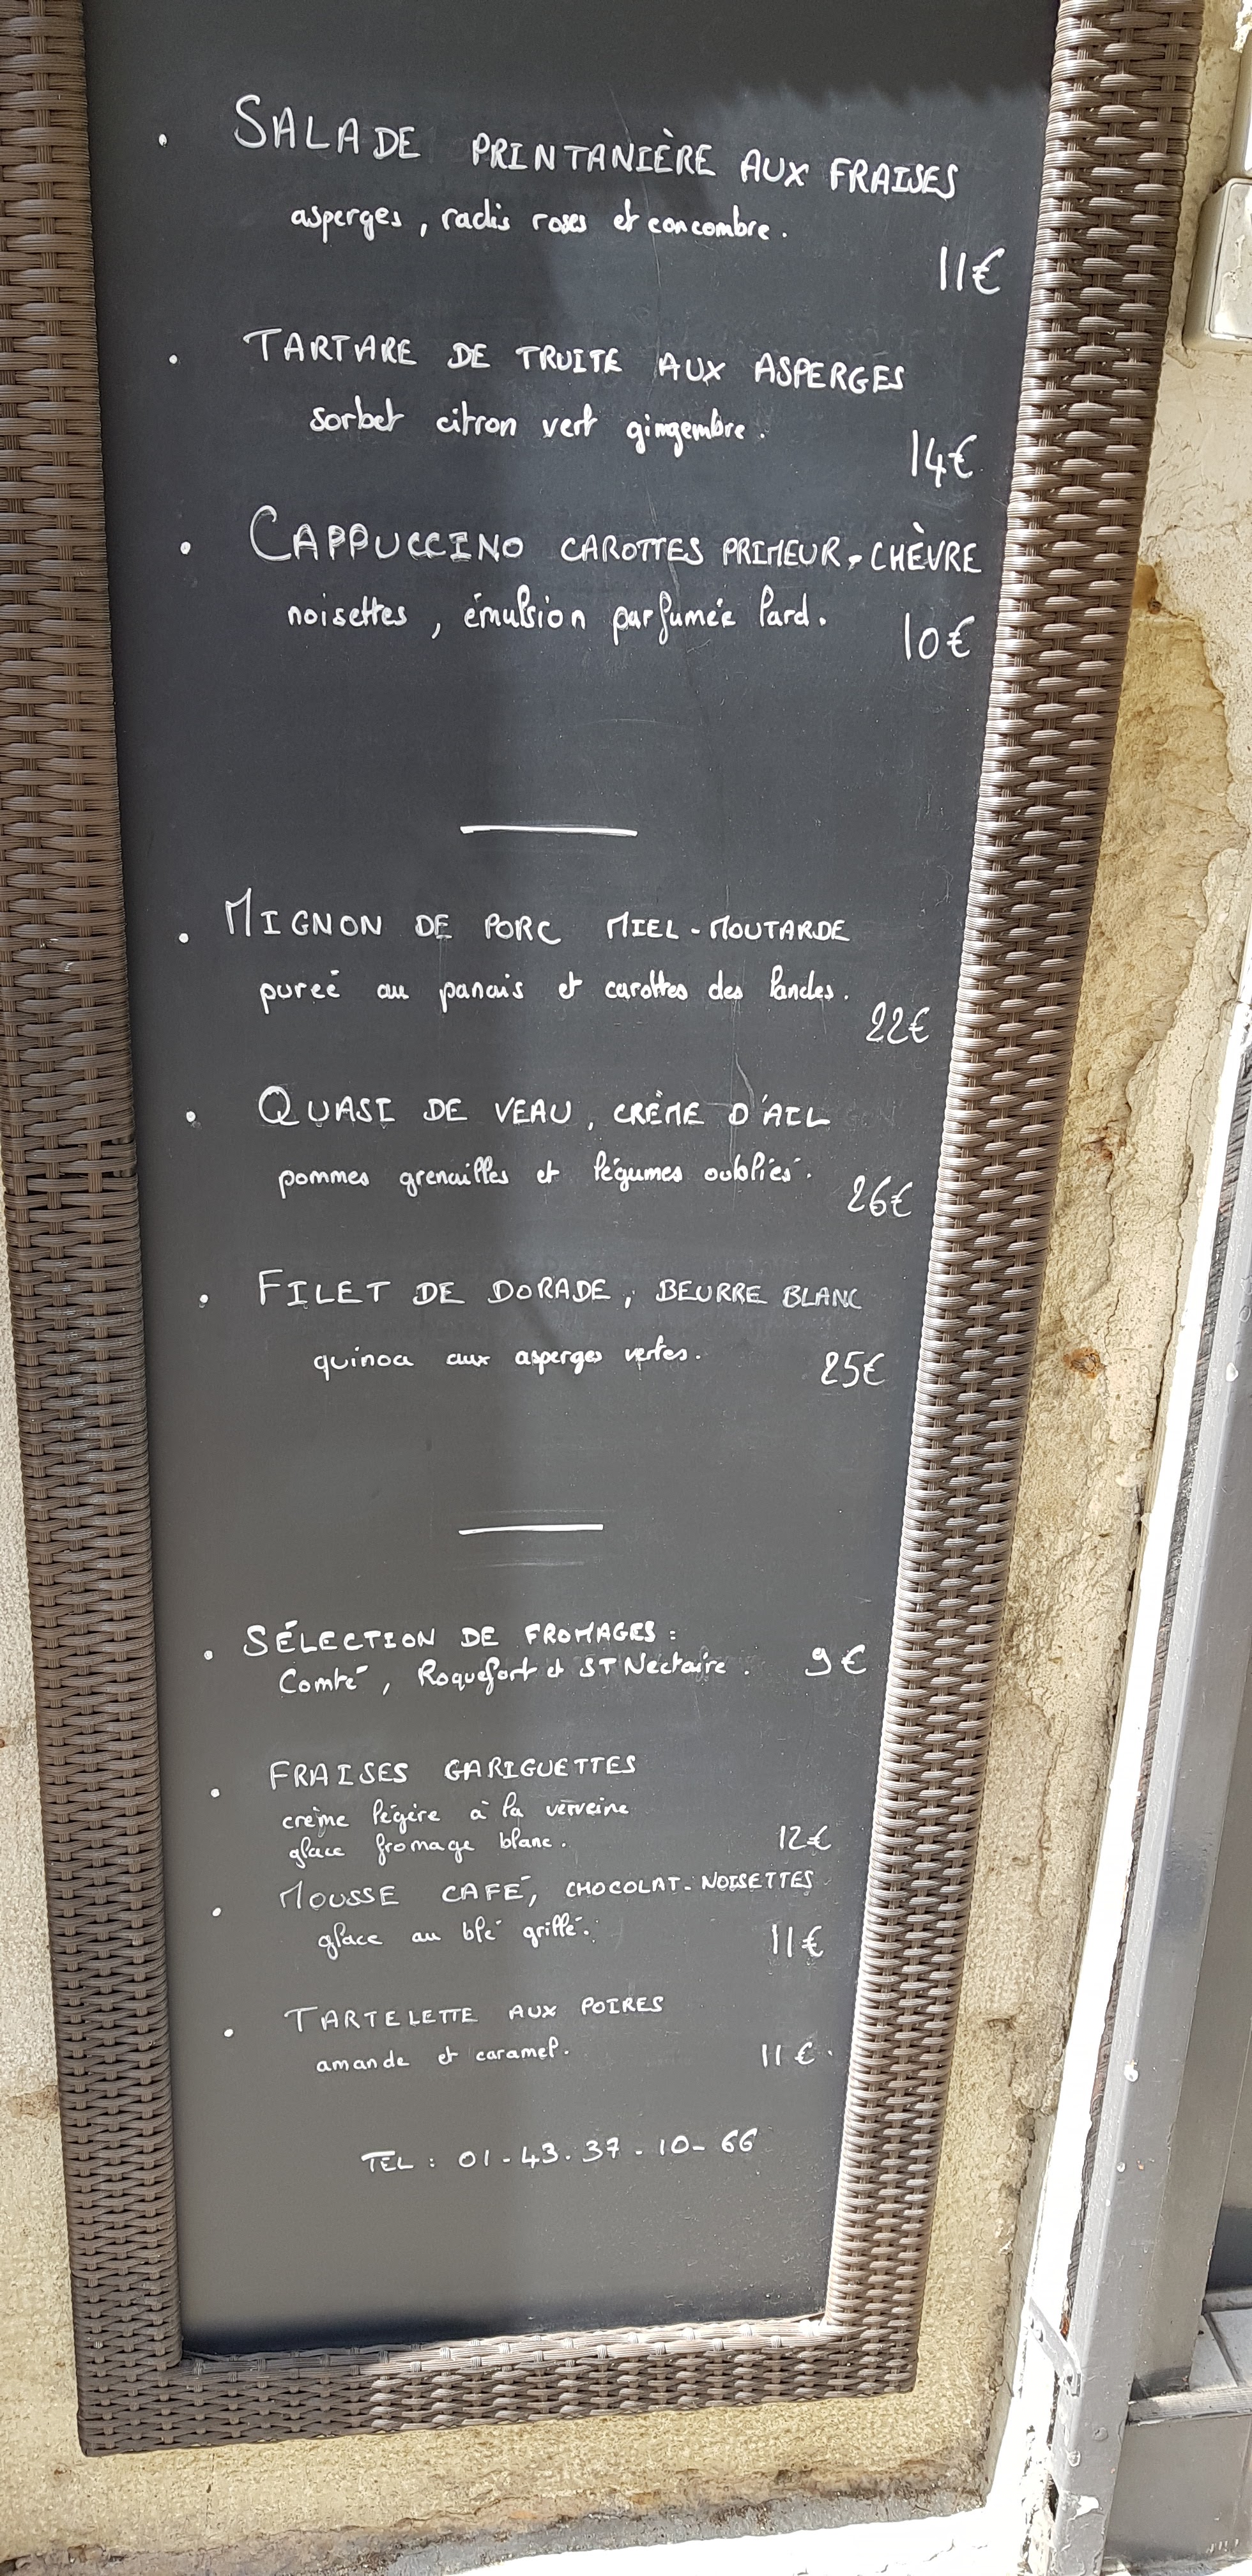 • SALADE PRINTANIÈRE AUX FRAISES
asperges, radis roses et concombre.
11€
• TARTARE DE TRUITE AUX ASPERGES
sorbet citron vert gingembre.
14€
• CAPPUCCINO CAROTTES PRIMEUR-CHÈVRE
noisettes, émulsion parfumée lard.
10€
• MIGNON DE PORC MIEL-MOUTARDE
pureé au panais et carottes des landes.
22€
• QUASI DE VEAU, CRÈME D'AIL
pommes grenailles et légumes oubliés.
26€
• FILET DE DORADE, BEURRE BLANC
quinoa aux asperges vertes.
25€
• SÉLECTION DE FROMAGES :
Comté, Roquefort et ST Nectaire. 9€
• FRAISES GARIGUETTES
crème légère à la verveine
glace fromage blanc. 12€
• MOUSSE CAFÉ, CHOCOLAT-NOISETTES
glace au blé grillé. 11€
• TARTELETTE AUX POIRES
amande et caramel. 11€.
TEL : 01-43.37-10-66